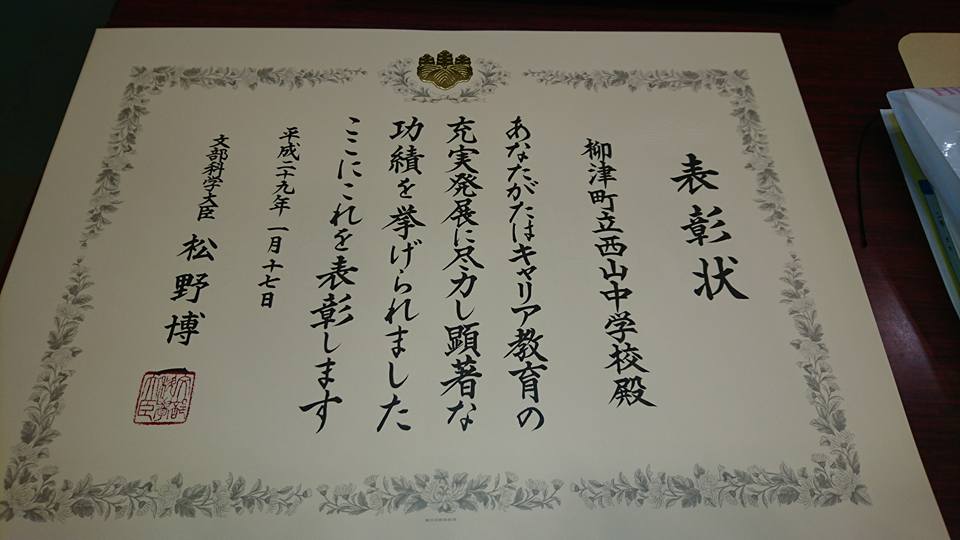 表彰状
柳津町立西山中学校殿
あなたがたはキャリア教育の
充実発展に尽力し顕著な
功績を挙げられました
ここにこれを表彰します
平成二十九年一月十七日
文部科学大臣 松野博